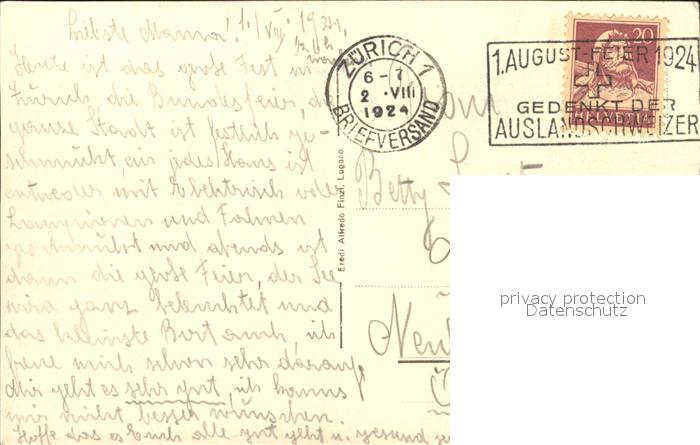 Liebste Mama! 1./VIII. 1924.
Heute ist das große Fest in
Zürich, die Bundesfeier, die
ganze Stadt ist festlich ge-
schmückt, ein jedes Haus ist
entweder mit Elektrisch oder
Lampionen und Fahnen
geschmückt und abends ist
dann die große Feier, der See
wird ganz beleuchtet und
das kleinste Boot auch, ich
freue mich schon sehr darauf,
Mir geht es sehr gut, ich kanns
mir nicht besser wünschen.
Hoffe das es Euch alle gut geht u. gesund
ZÜRICH 1
6-7
2.VIII
1924
BRIEFVERSAND
20
HELVETIA
1.AUGUST-FEIER 1924
GEDENKT DER
AUSLANDSCHWEIZER
Eredi Alfredo Finzi, Lugano
Betty
privacy protection
Datenschutz